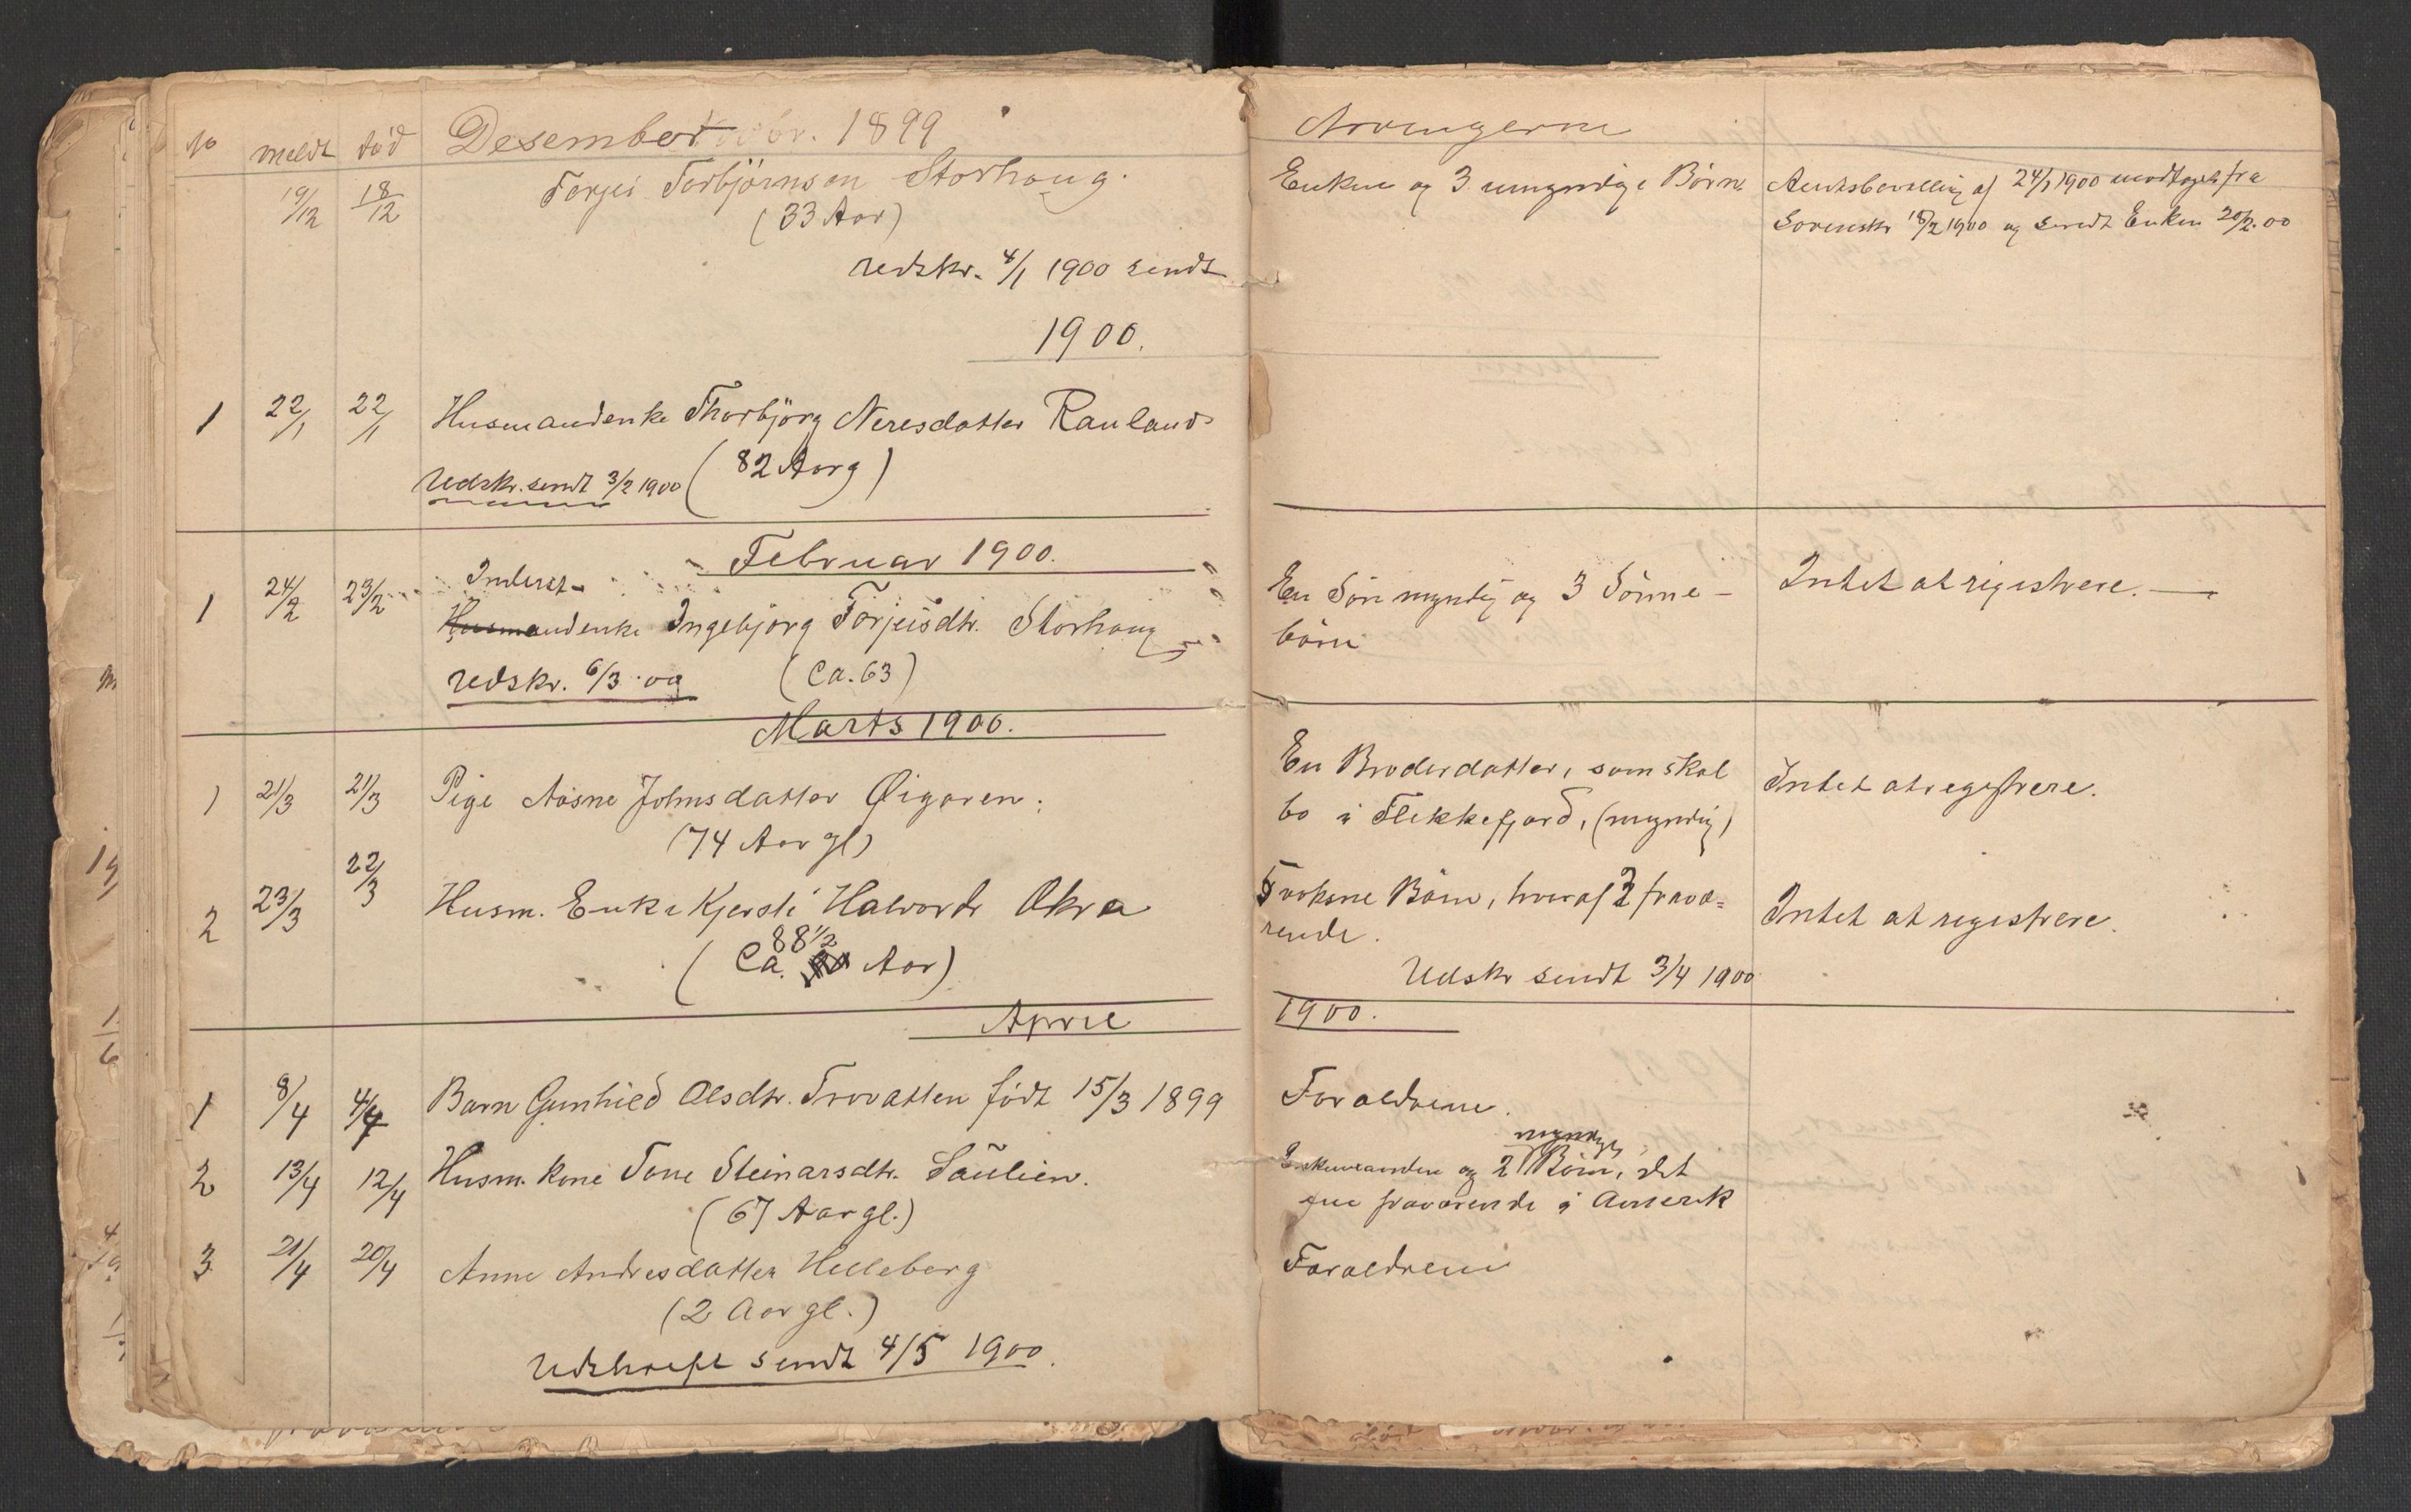 No meldt död Desember 1899
19/12 18/12 Torjei Torbjörnsen Storhaug.
(33 Aar)
udskr. 4/1 1900 sendt
1900.
1 22/1 22/1 Husmandenke Thorbjörg Neresdatter Rauland
(82 Aarg)
Udskr. sendt 3/2 1900
Februar 1900.
Inderst-
1 24/2 23/2 Husmandenke Ingebjörg Torjeisdtr. Storhaug
udskr. 6/3 00 (Ca. 63)
Marts 1900.
1 21/3 21/3 Pige Aasne Johnsdatter Øigaren.
(74 Aar gl)
2 23/3 22/3 Husm. Enke Kjersti Halvordr Okra
88 1/2
(Ca. Aar)
April
1 8/4 4/4 Barn Gunhild Olsdtr. Trovatten födt 15/3 1899
2 13/4 12/4 Husm. kone Tone Steinarsdtr. Saulien.
(67 Aar gl.)
3 21/4 20/4 Anne Andresdatter Helleberg
(2 Aar gl.)
Udskrift sendt 4/5 1900.
Arvingerne
Enken og 3 umyndige Börn. Amtsbevilling af 24/1 1900 modtaget fra
Sorenskr 18/2 1900 og sendt Enken 20/2.00
En Sön myndig og 3 Sönne- Intet at registrere.
börn
En Broderdatter, som skal Intet at registrere.
bo i Flekkefjord, (myndig)
5 voksne Börn, hvoraf 2 fravæ= Intet at registrere.
rende.
Udskr sendt 3/4 1900
1900.
Forældrene.
myndige
Enkemanden og 2 Börn, det
ene fraværende i Amerik
Forældrene